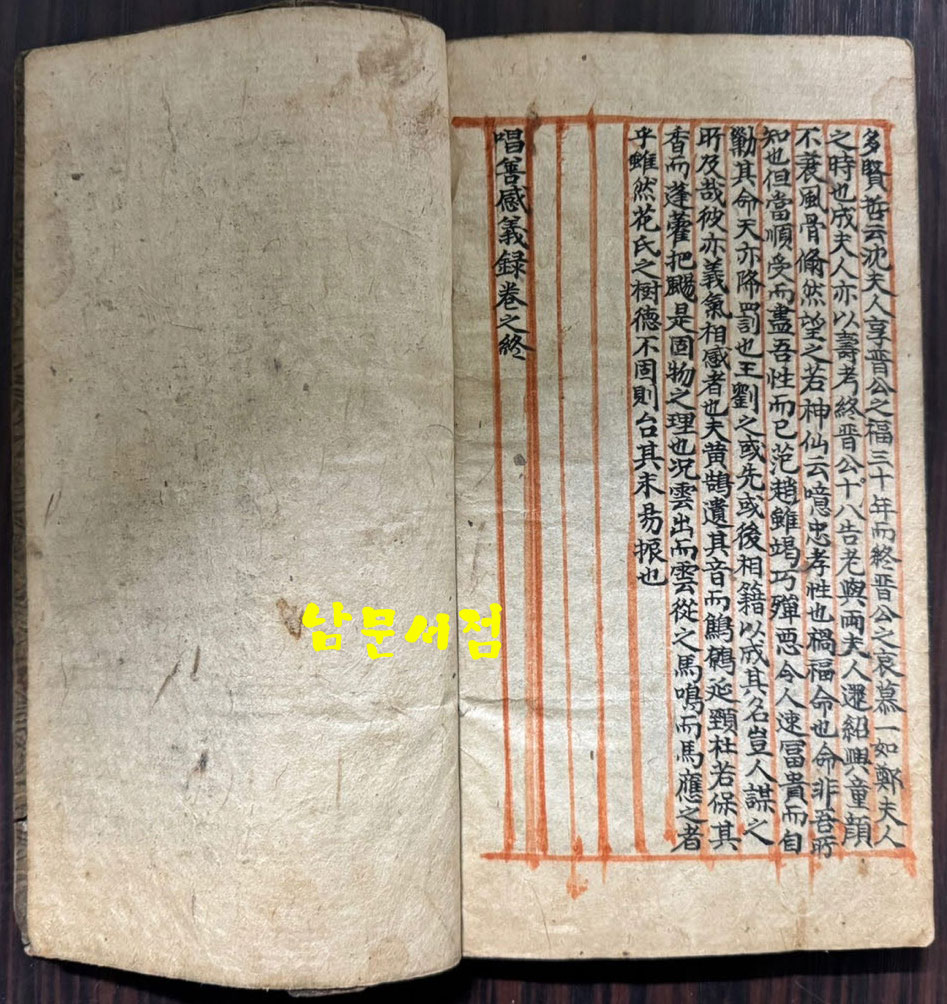 多賢哲云沈夫人享晉公之福三十年而終晉公之哀慕一如鄭夫人
之時也成夫人亦以壽考終晉公十八告老與兩夫人還紹興童顔
不衰風骨脩然望之若神仙云噫忠孝性也禍福命也命非吾所
知也但當順受而盡吾性而已范趙雖竭巧殫惡令人速冨貴而自
勦其命天亦降罰也王劉之或先或後相籍以成其名豈人謀之
所及哉彼亦義氣相感者也夫黄鵠遺其音而鷦鵷延頸杜若保其
香而蓬藿把颺是固物之理也况雲出而雲從之馬鳴而馬應之者
乎雖然花氏之樹德不固則台其末易振也
唱善感義録卷之終
남문서점